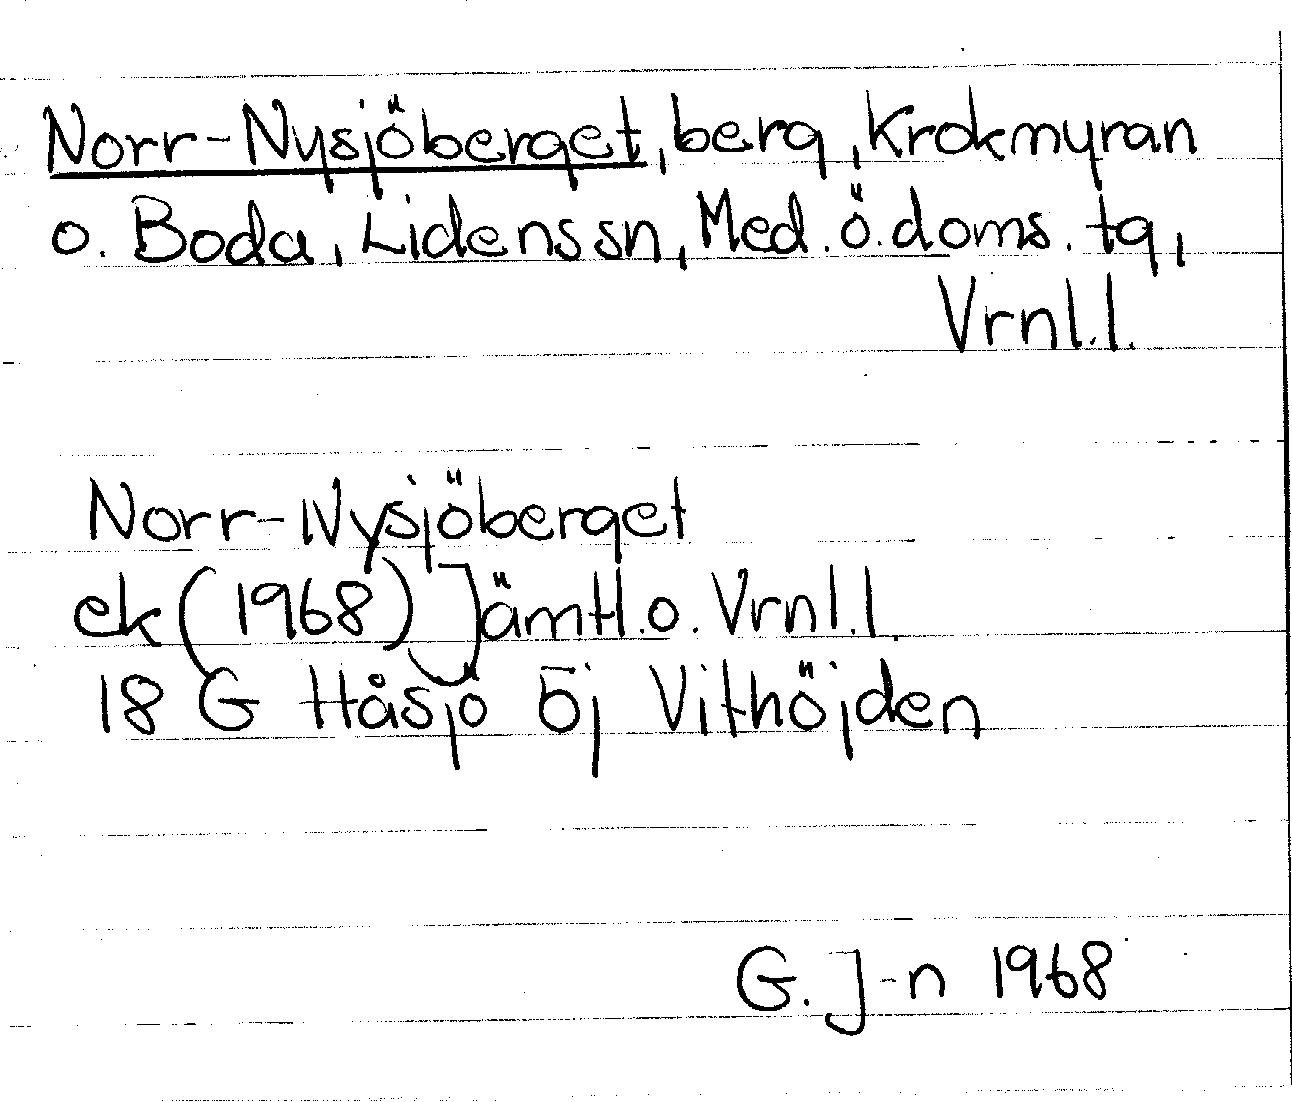 Norr-Nysjöberget, berg, Krokmyran
o. Boda, Lidens sn, Med. ö. doms. tg,
Vrnl.l.
Norr-Nysjöberget
ek (1968) Jämtl. o. Vrnl.l.
18 G Håsjö 5j Vithöjden
G. J-n 1968